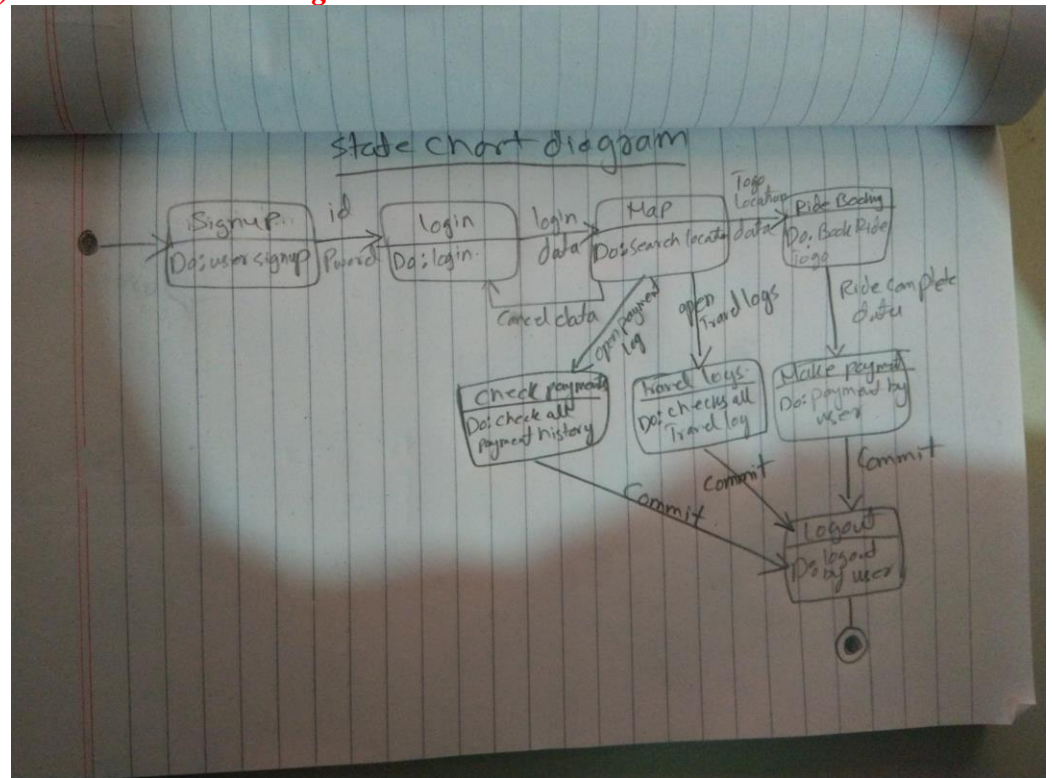 State chart diagram
Signup
Do: user signup
id
login
Do: login
login
data
Map
Do: search locatn
Togo
Location
data
Ride Bookng
Do: Book Ride
Togo
Cancel data
open payment
log
open
Travel logs
Ride complete
data
Check payments
Do: check all
payment history
Travel logs
Do: checks all
Travel log
Make payment
Do: payment by
user
Commit
Commit
Commit
Logout
Do: logout
by user